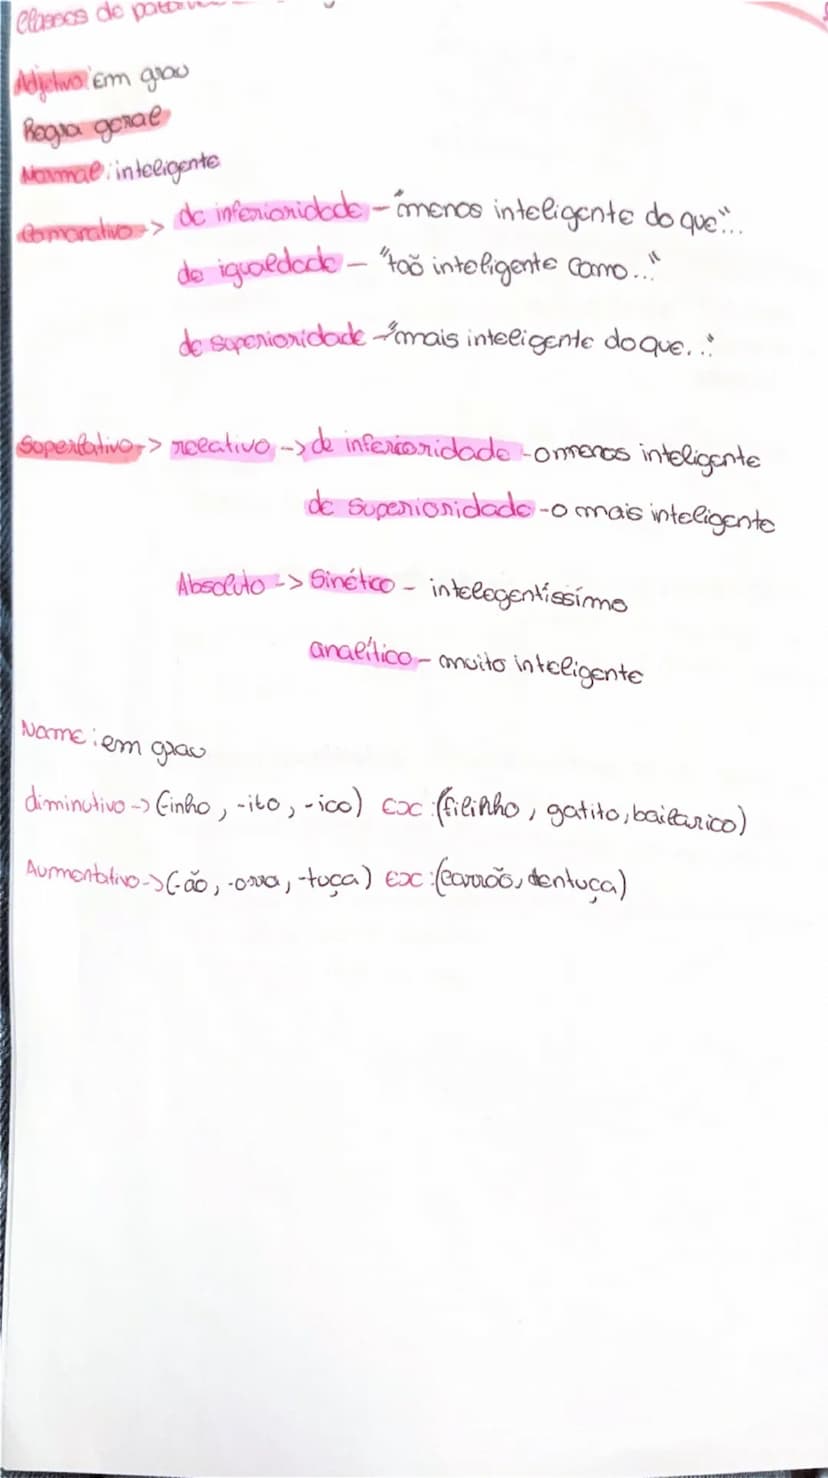 Classes de
Adjetivo: Em grau
Regra geral
Normal: inteligente
Comparativo -> de inferioridade - "menos inteligente do que"...
de igualdade - "taõ inteligente como..."
de superioridade - "mais inteligente do que..."
Superlativo -> relativo -> de inferioridade - o menos inteligente
de superioridade - o mais inteligente
Absoluto -> Sinético - intelegentíssimo
analítico - muito inteligente
Nome: em grau
diminutivo -> (-inho, -ito, -ico) Ex: (filinho, gatito, bailarico)
Aumentativo -> (-ão, -orra, -tuça) Ex: (carroõ, dentuça)